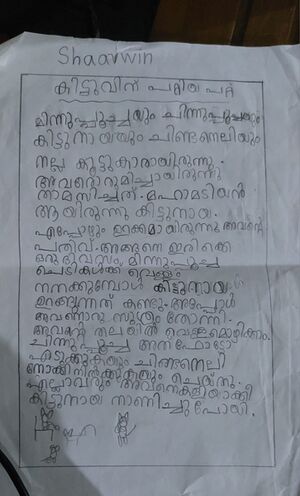 Shaarwin
കിട്ടുവിന് പറ്റിയ പറ്റ്
മിന്നുപ്പൂച്ചയും ചിന്നുപ്പൂച്ചയും
കിട്ടുനായയും ചിണ്ടനെലിയും
നല്ല കൂട്ടുകാരായിരുന്നു.
അവരൊരുമിച്ചായിരുന്നു
താമസിച്ചത്. മഹാമടിയൻ
ആയിരുന്നു കിട്ടുനായ.
എപ്പോഴും ഉറക്കമായിരുന്നു അവന്റെ
പതിവ്. അങ്ങനെ ഇരിക്കെ
ഒരു ദിവസം മിന്നുപ്പൂച്ച
ചെടികൾക്ക് വെള്ളം
നനക്കുമ്പോൾ കിട്ടുനായ
ഉറങ്ങുന്നത് കണ്ടു. അപ്പോൾ
അവനൊരു സൂത്രം തോന്നി.
അവന്റെ തലയിൽ വെള്ളമൊഴിക്കാം.
ചിന്നുപ്പൂച്ച അത് ഫോട്ടോ
എടുക്കുകയും ചിണ്ടനെലി
നോക്കിനിൽക്കുകയും ചെയ്തു.
എല്ലാവരും അവനെ കളിയാക്കി
കിട്ടുനായ നാണിച്ചു പോയി.